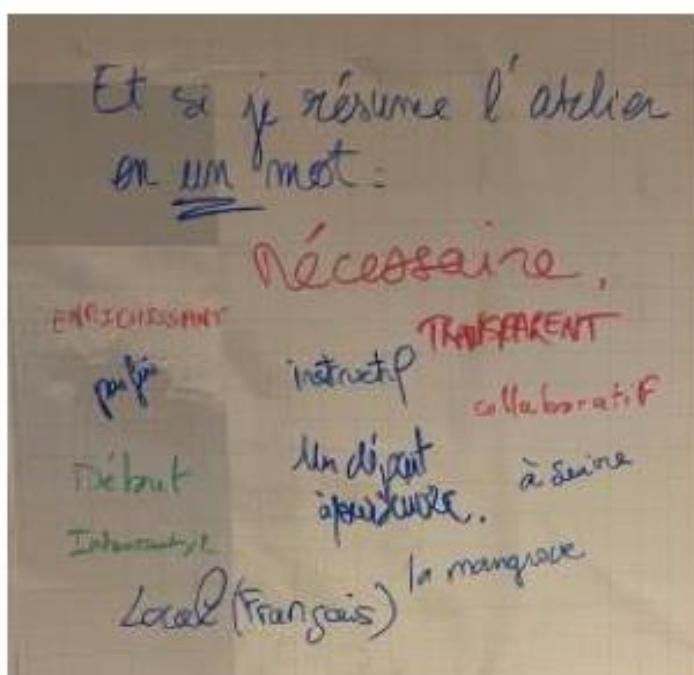 Et si je résume l'atelier
en un mot :
Nécessaire.
ENRICHISSANT
TRANSPARENT
instructif
collaboratif
Début
Un départ
à poursuivre.
à suivre
la mangrove
Local (Français)